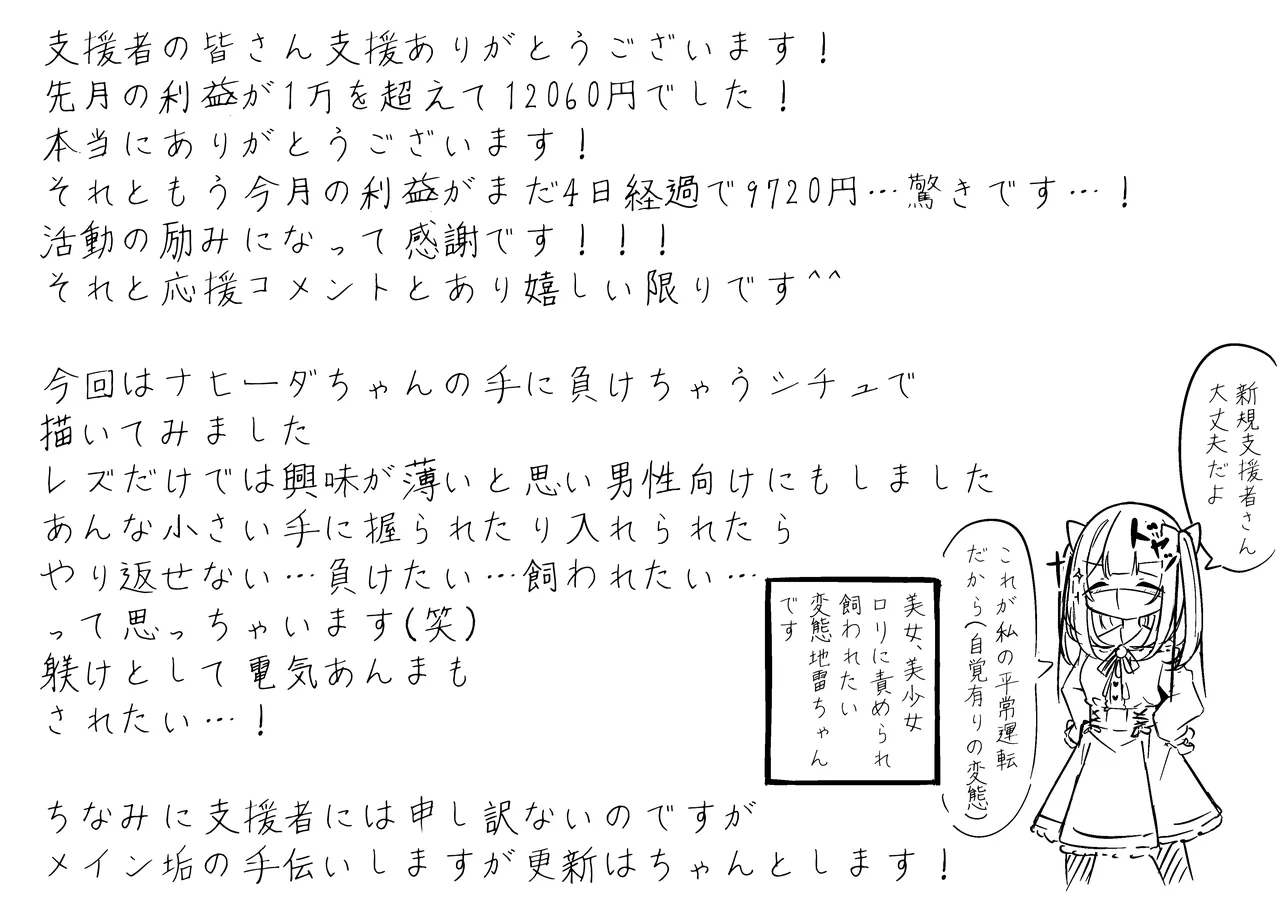 支援者の皆さん支援ありがとうございます！
先月の利益が1万を超えて12060円でした！
本当にありがとうございます！
それともう今月の利益がまだ4日経過で9720円…驚きです…！
活動の励みになって感謝です！！！
それと応援コメントとあり嬉しい限りです^^
今回はナヒーダちゃんの手に負けちゃうシチュで
描いてみました
レズだけでは興味が薄いと思い男性向けにもしました
あんな小さい手に握られたり入れられたら
やり返せない…負けたい…飼われたい…
って思っちゃいます(笑)
躾けとして電気あんまも
されたい…！
ちなみに支援者には申し訳ないのですが
メイン垢の手伝いしますが更新はちゃんとします！
新規支援者さん
大丈夫だよ
ドヤ
これが私の平常運転
だから(自覚有りの変態)
美女、美少女
ロリに責められ
飼われたい
変態地雷ちゃん
です